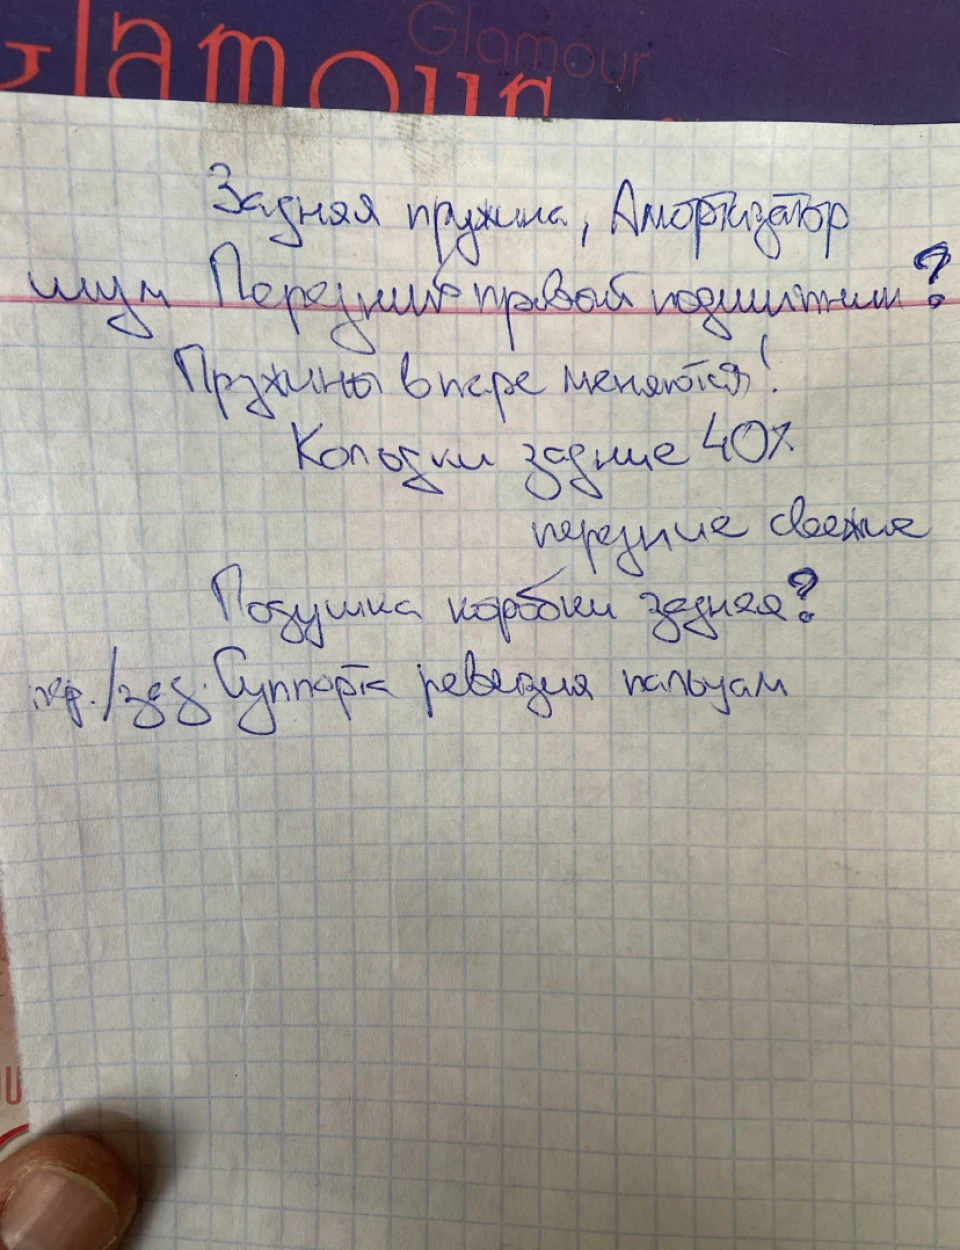 Glamour
Glamour
Задняя пружина, Амортизатор
шум Передний правый подшипник?
Пружины в паре меняются!
Колодки задние 40%
передние свежие
Подушка коробки задняя?
пер./зад. Суппорта ревизия пальцам